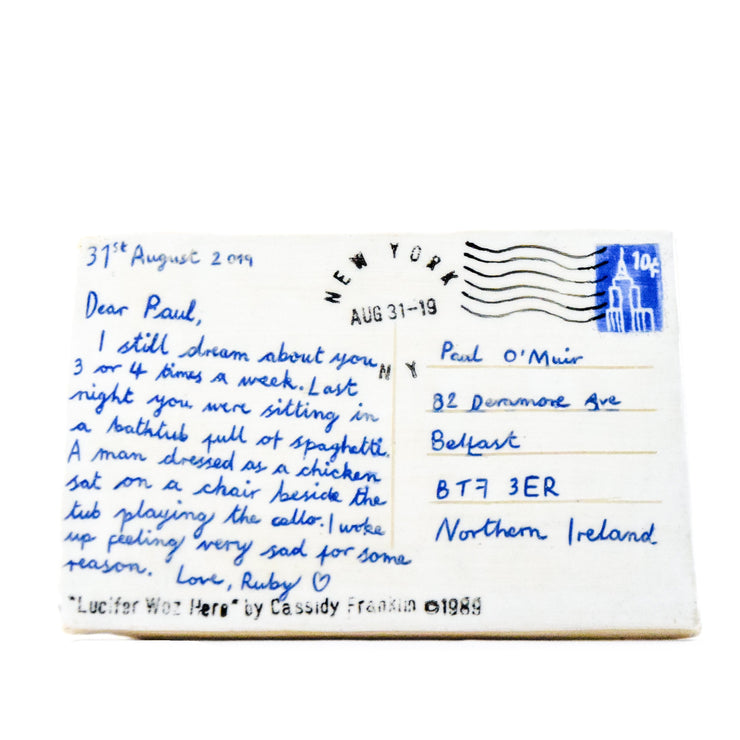 31st August 2019
Dear Paul,
I still dream about you
3 or 4 times a week. Last
night you were sitting in
a bathtub full of spaghetti.
A man dressed as a chicken
sat on a chair beside the
tub playing the cello. I woke
up feeling very sad for some
reason. Love, Ruby ♡
NEW YORK
AUG 31-19
NY
10¢
Paul O'Muir
82 Deramore Ave
Belfast
BT7 3ER
Northern Ireland
"Lucifer Woz Here" by Cassidy Franklin ©1989